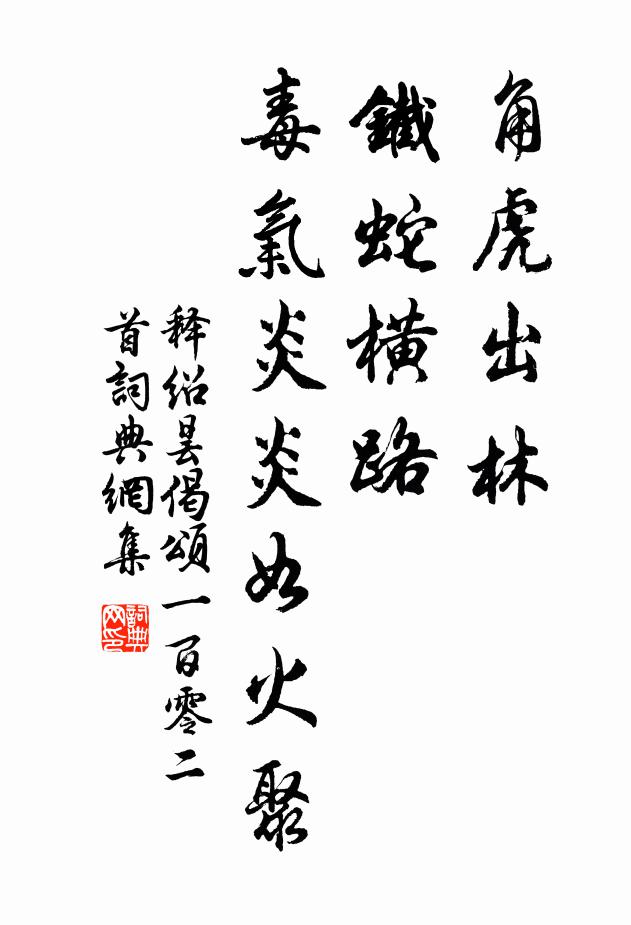 角虎出林
鐵蛇橫路
毒氣炎炎如火聚
释绍昙偈頌一百零二
首詞典網集
詞典网印